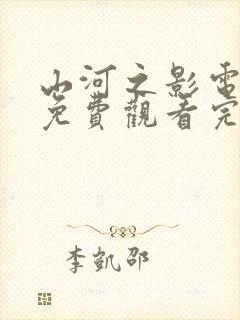 山河之影電
免費觀看完
李凱邵